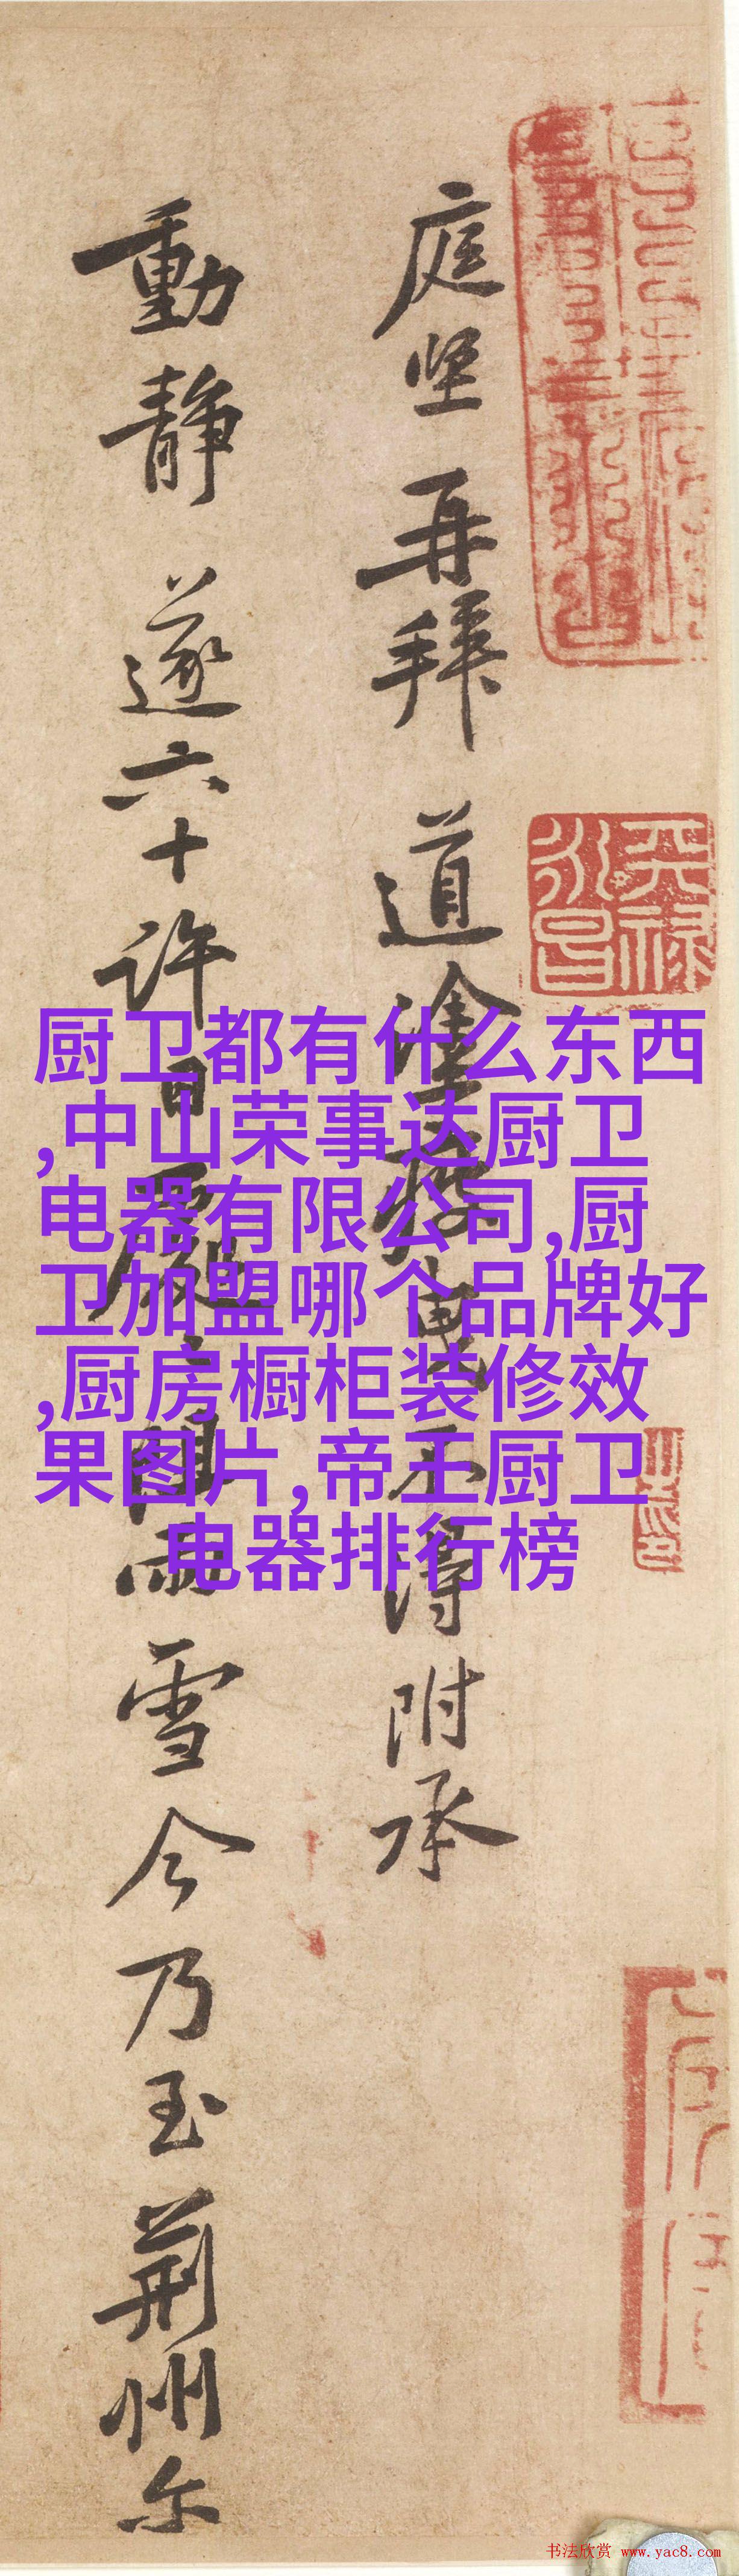 庭坚再拜道塗疲曳不得附承
動静遂六十許日屢阻雨雪今乃至荆州尔
天禄
永昌
厨卫都有什么东西
,中山荣事达厨卫
电器有限公司,厨
卫加盟哪个品牌好
,厨房橱柜装修效
果图片,帝王厨卫
电器排行榜
书法欣赏 www.yac8.com